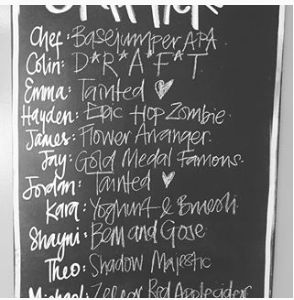 STAFF PICK
Chef: Basejumper APA
Colin: D*R*A*F*T
Emma: Tainted ♡
Hayden: Epic Hop Zombie
James: Flower Arranger.
Jay: Gold Medal Famous.
Jordan: Tainted ♡
Kara: Yoghurt &
Shayni: Bem and Gose
Theo: Shadow Majestic
Michael: Zeffer Red Apple cider